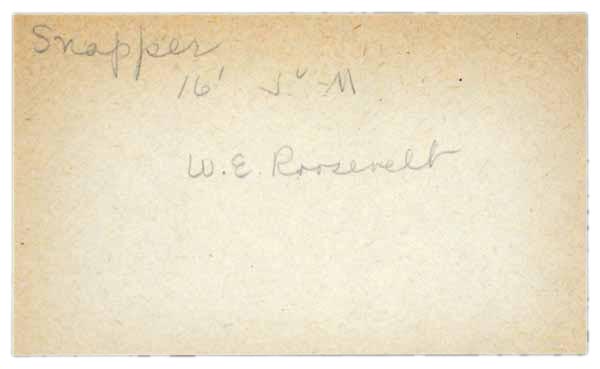 Snapper
16' J" M
W. E. Roosevelt